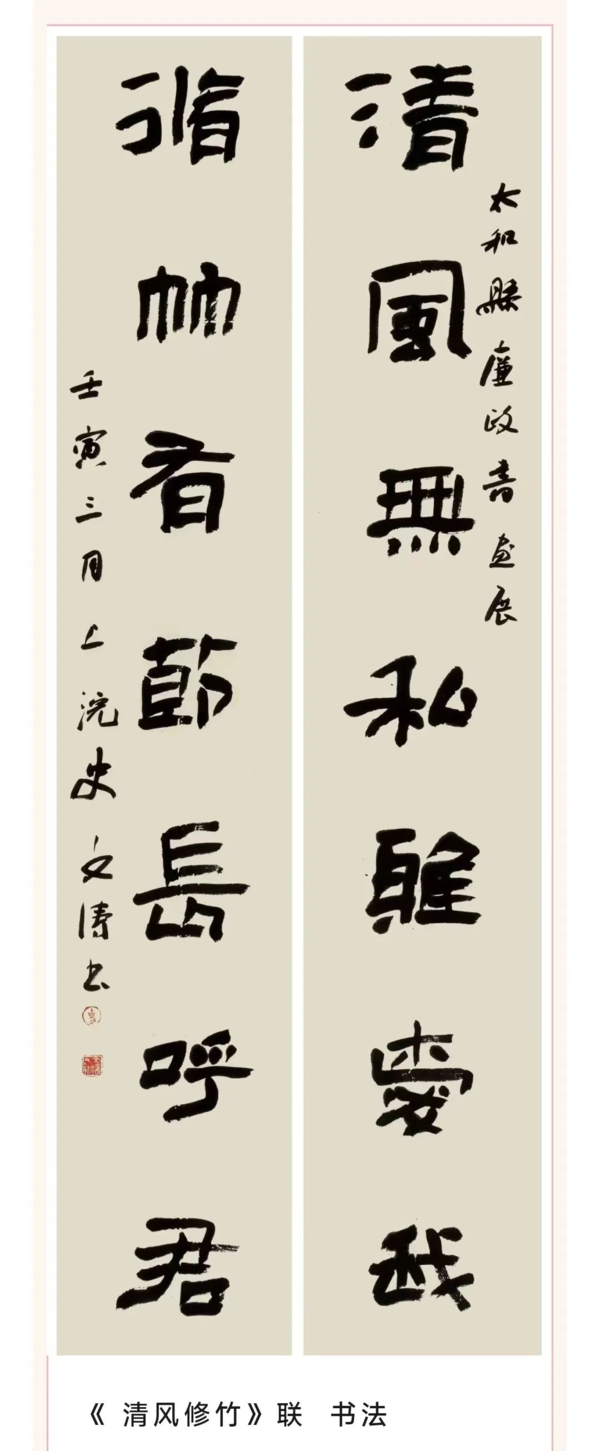 太和縣廉政書畫展
清風無私雅愛我
脩竹有節長呼君
壬寅三月上浣史文濤書
《 清风修竹》联 书法